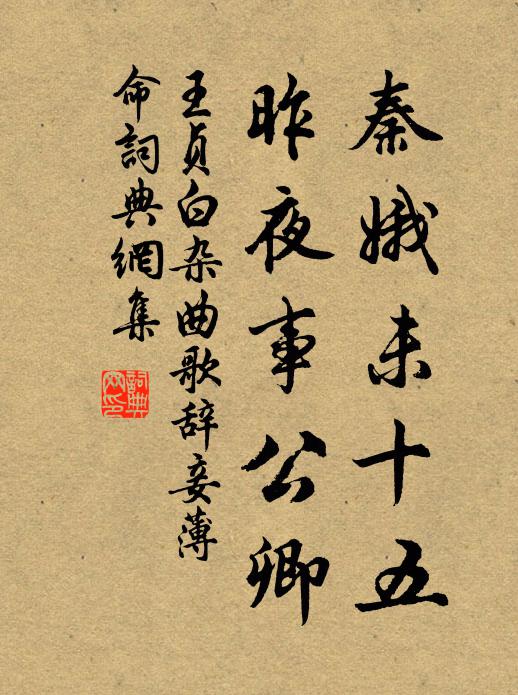 秦娥未十五
昨夜事公卿
王贞白杂曲歌辞妾薄
命詞典網集
詞典
网印